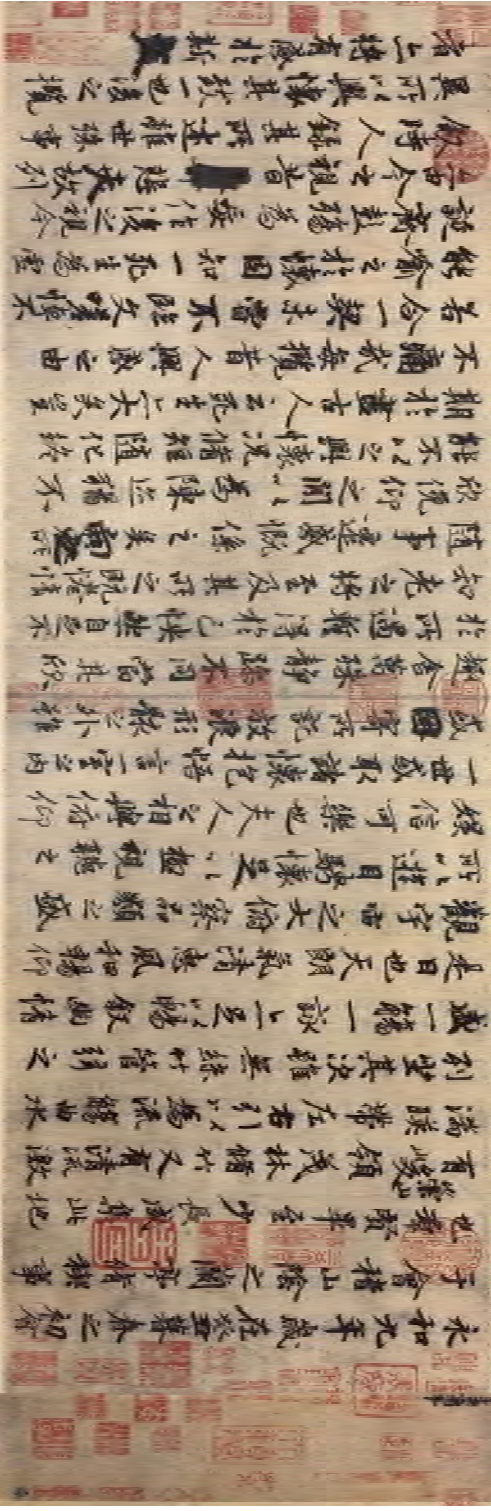 永和九年歲在癸丑暮春之初會
于會稽山陰之蘭亭脩稧事
也羣賢畢至少長咸集此地
有崇山峻領茂林脩竹又有清流激
湍暎帶左右引以為流觴曲水
列坐其次雖無絲竹管弦之
盛一觴一詠亦足以暢敘幽情
是日也天朗氣清惠風和暢仰
觀宇宙之大俯察品類之盛
所以遊目騁懷足以極視聽之
娛信可樂也夫人之相與俯仰
一世或取諸懷抱悟言一室之內
或因寄所託放浪形骸之外雖
趣舍萬殊靜躁不同當其欣
於所遇蹔得於己快然自足不
知老之將至及其所之既惓情
隨事遷感慨係之矣向之所
欣俛仰之閒以為陳迹猶不
能不以之興懷況脩短隨化終
期於盡古人云死生亦大矣豈
不痛哉每攬昔人興感之由
若合一契未嘗不臨文嗟悼不
能喻之於懷固知一死生為虛
誕齊彭殤為妄作後之視今
亦由今之視昔悲夫故列
敘時人錄其所述雖世殊事
異所以興懷其致一也後之攬
者亦將有感於斯文